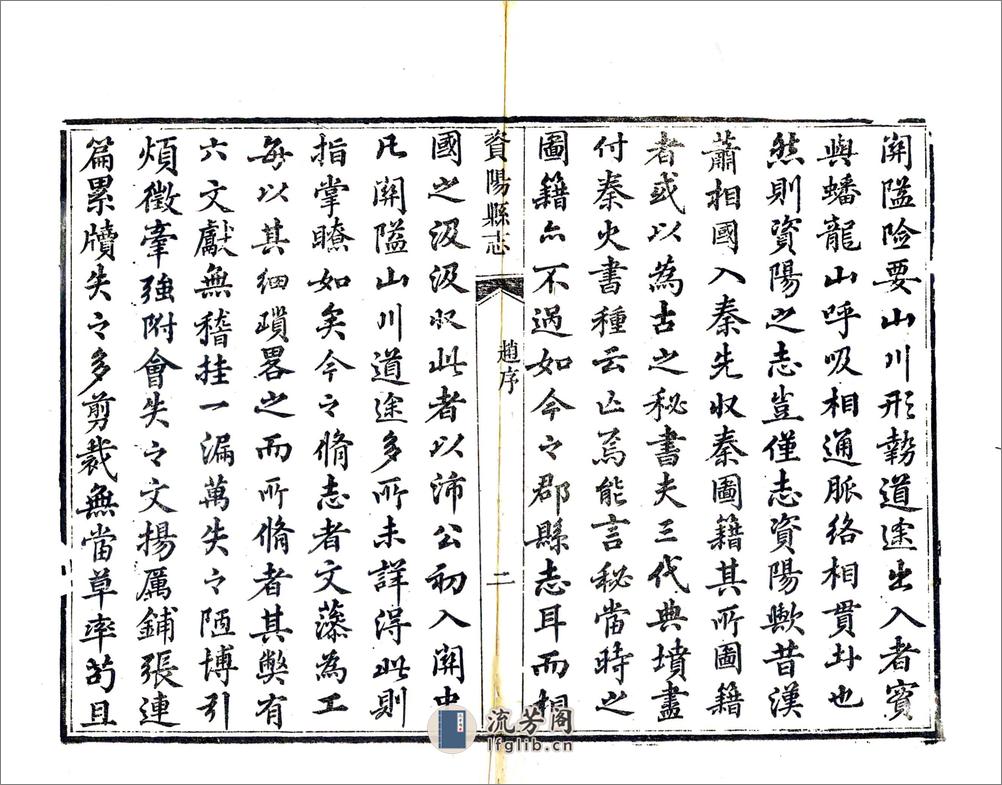 關隘險要山川形勢道途出入者實
與蟠龍山呼吸相通脈絡相貫丼也
然則資陽之志豈僅志資陽歟昔漢
蕭相國入秦先収秦圖籍其所圖籍
者或以為古之秘書夫三代典墳盡
付秦火書種云亡焉能言秘當時之
圖籍亦不過如今之郡縣志耳而相
資陽縣志
趙序
二
國之汲汲収此者以沛公初入關中
凡關隘山川道途多所未詳得此則
指掌瞭如矣今之脩志者文藻為工
每以其細瑣畧之而所脩者其獘有
六文獻無稽挂一漏萬失之陋博引
煩徵牽強附會失之文揚厲鋪張連
篇累牘失之多剪裁無當草率苟且
流芳阁
lfglib.cn